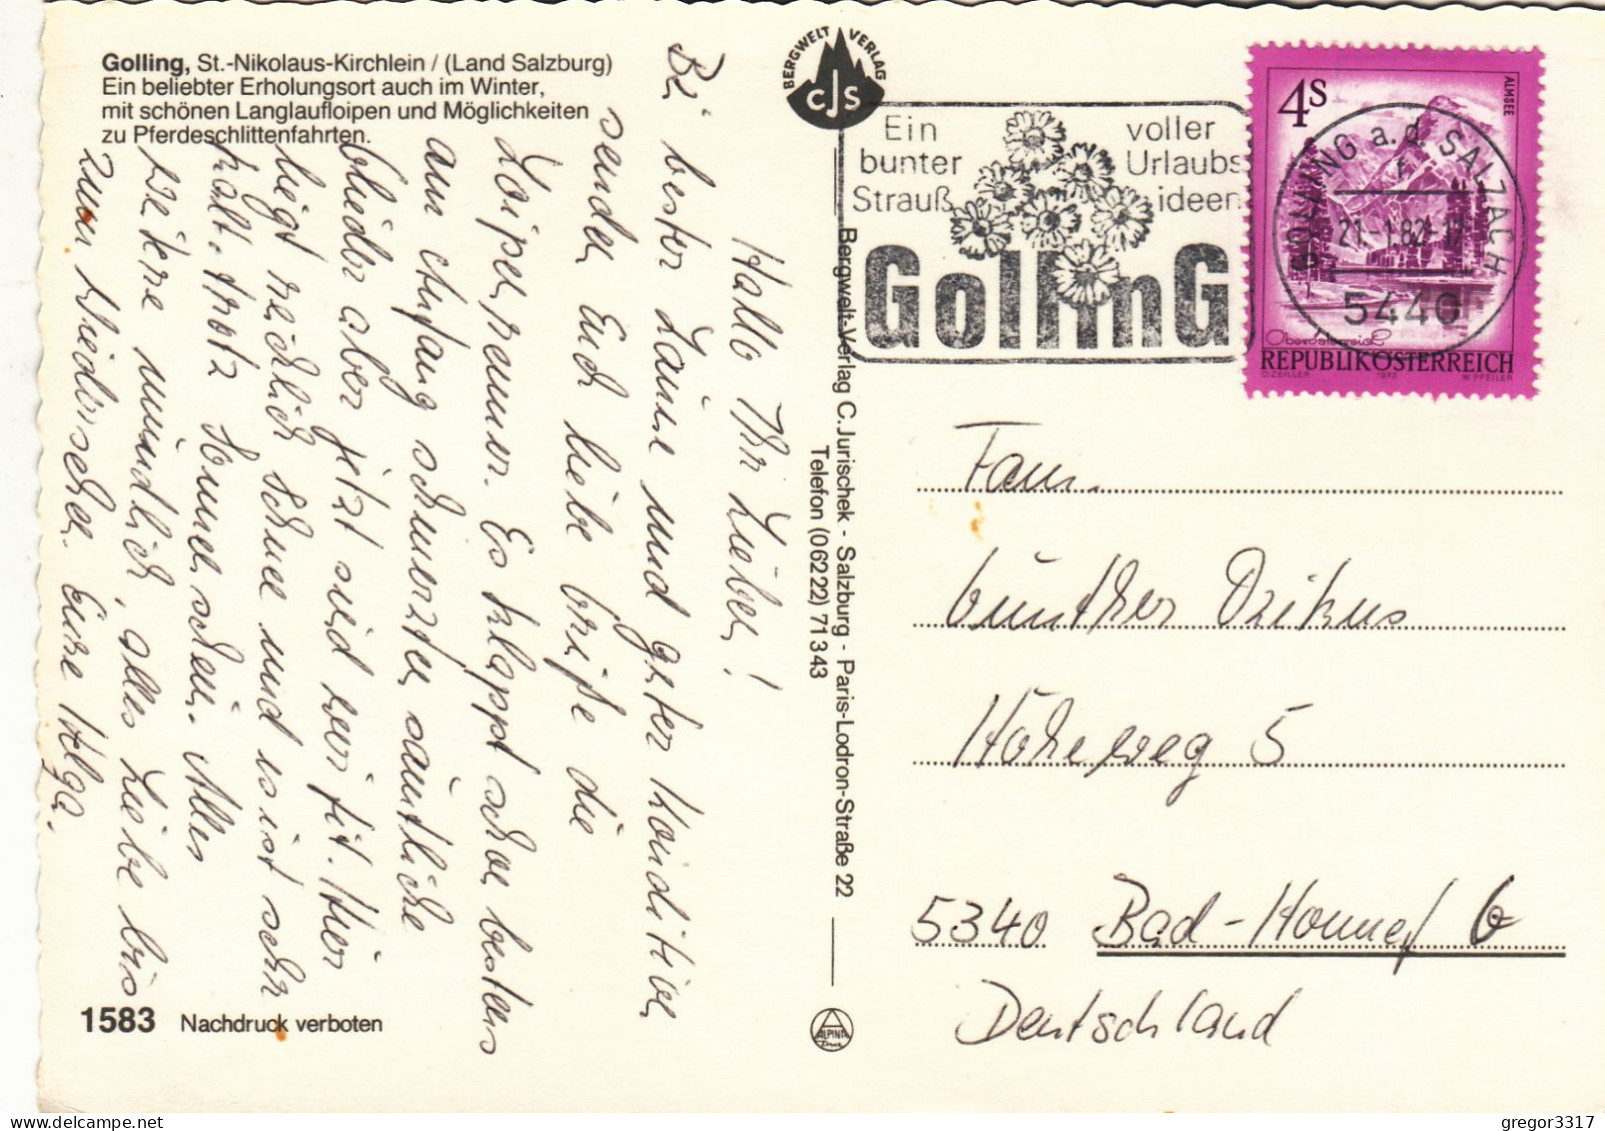 Golling, St.-Nikolaus-Kirchlein / (Land Salzburg)
Ein beliebter Erholungsort auch im Winter,
mit schönen Langlaufloipen und Möglichkeiten
zu Pferdeschlittenfahrten.
Hallo Ihr Lieben!
Bei bester Laune und guter Kondition
sende Euch liebe Grüße die
Loipenrenner. Es klappt schon bestens
am Anfang schmerzten sämtliche
Glieder aber jetzt sind wir fit. Hier
liegt reichlich Schnee und es ist sehr
kalt, trotz Sonnenschein. Alles
weitere mündlich, alles Liebe bis
zum Wiedersehen. Eure Helga.
1583 Nachdruck verboten
BERGWELT VERLAG
CJS
Bergwelt-Verlag C.Jurischek - Salzburg - Paris-Lodron-Straße 22
Telefon (06222) 71343
ALPINA
Ein bunter Strauß
voller Urlaubs ideen
Golling
4S
ALMSEE
GOLLING a.d. SALZACH
21.-1.82-17
5440
Oberösterreich
REPUBLIK ÖSTERREICH
O. ZEILLER 1973 W. PFEILER
Fam.
Günther Dzikus
Höheweg 5
5340 Bad-Honnef 6
Deutschland
gregor3317